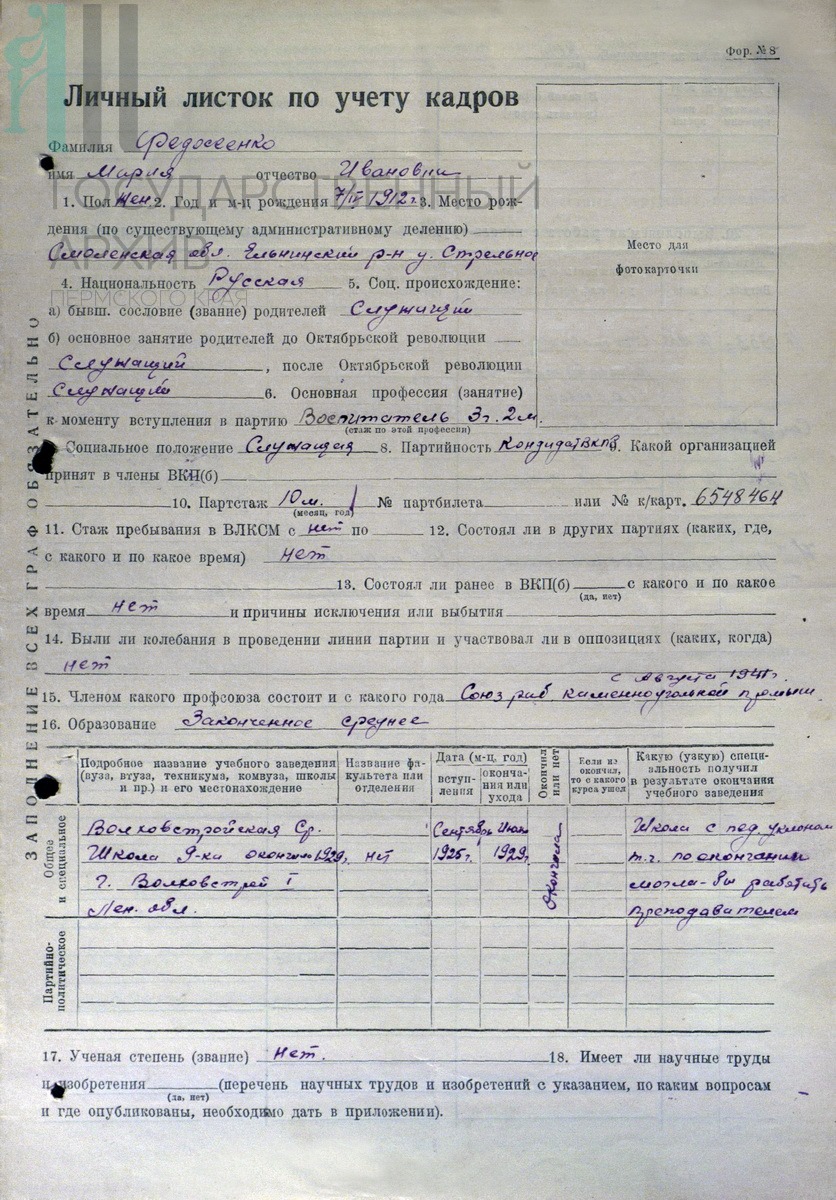 Фор. № 8
Личный листок по учету кадров
Фамилия Федосеенко
имя Мария отчество Ивановна
1. Пол жен 2. Год и м-ц рождения 7/IV 1912 г. 3. Место рож-
дения (по существующему административному делению)
Смоленская обл. Ельнинский р-н у. Стрельное
4. Национальность Русская 5. Соц. происхождение:
а) бывш. сословие (звание) родителей Служащий
б) основное занятие родителей до Октябрьской революции
Служащий, после Октябрьской революции
Служащий 6. Основная профессия (занятие)
к моменту вступления в партию Воспитатель 3 г. 2 м.
(стаж по этой профессии)
Место для
фотокарточки
Социальное положение Служащая 8. Партийность Кондидат ВКПб 9. Какой организацией
принят в члены ВКП(б)
10. Партстаж 10 м. № партбилета или № к/карт. 6548464
(месяц, год)
11. Стаж пребывания в ВЛКСМ с нет по 12. Состоял ли в других партиях (каких, где,
с какого и по какое время) нет
13. Состоял ли ранее в ВКП(б) с какого и по какое
(да, нет)
время нет и причины исключения или выбытия
14. Были ли колебания в проведении линии партии и участвовал ли в оппозициях (каких, когда)
нет
с Августа 1941 г.
15. Членом какого профсоюза состоит и с какого года Союз раб каменноугольной промыш.
16. Образование Законченное среднее
Подробное название учебного заведения (вуза, втуза, техникума, комвуза, школы и пр.) и его местонахождение
Название факультета или отделения
Дата (м-ц, год)
вступления
окончания или ухода
Окончил или нет
Если не окончил, то с какого курса ушел
Какую (узкую) специальность получил в результате окончания учебного заведения
Общее и специальное
Волховстройская Ср. Сентябрь Июнь Школа с пед. уклоном
Школа 9-ка окончила 1929 г. нет 1925 г. 1929 г. Окончила т.ч. по окончании
г. Волховстрой I могла-бы работать
Лен. обл. преподавателем
Партийно-политическое
17. Ученая степень (звание) Нет. 18. Имеет ли научные труды
и изобретения (перечень научных трудов и изобретений с указанием, по каким вопросам
(да, нет)
и где опубликованы, необходимо дать в приложении).
ЗАПОЛНЕНИЕ ВСЕХ ГРАФ ОБЯЗАТЕЛЬНО
ГОСУДАРСТВЕННЫЙ
АРХИВ
ПЕРМСКОГО КРАЯ